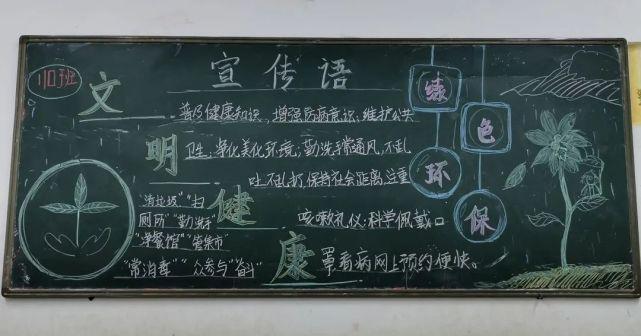 110班
宣传语
文明健康
绿色环保
普及健康知识，增强防病意识；维护公共
卫生，净化美化环境；勤洗手常通风，不乱
吐不乱扔，保持社会距离，注重
咳嗽礼仪，科学佩戴口
罩看病网上预约便快。
"清垃圾""扫
厕所""勤洗手"
"净餐馆""管集市"
"常消毒""众参与"